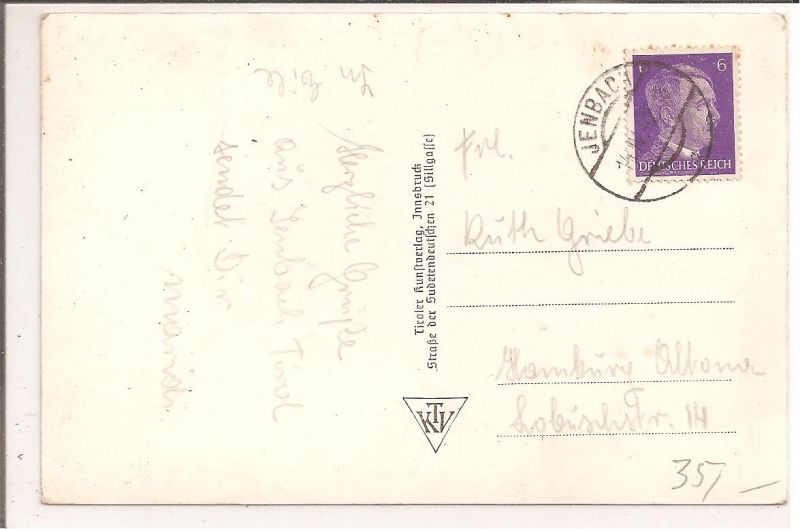 In Eile
Herzliche Grüße
aus Jenbach Tirol
sendet Dir
Tiroler Kunstverlag, Innsbruck
Straße der Sudetendeutschen 21 (Sillgasse)
KTV
6
DEUTSCHES REICH
JENBACH
Frl.
Ruth Griebe
Hamburg Altona
Lobuschstr. 14
35,-